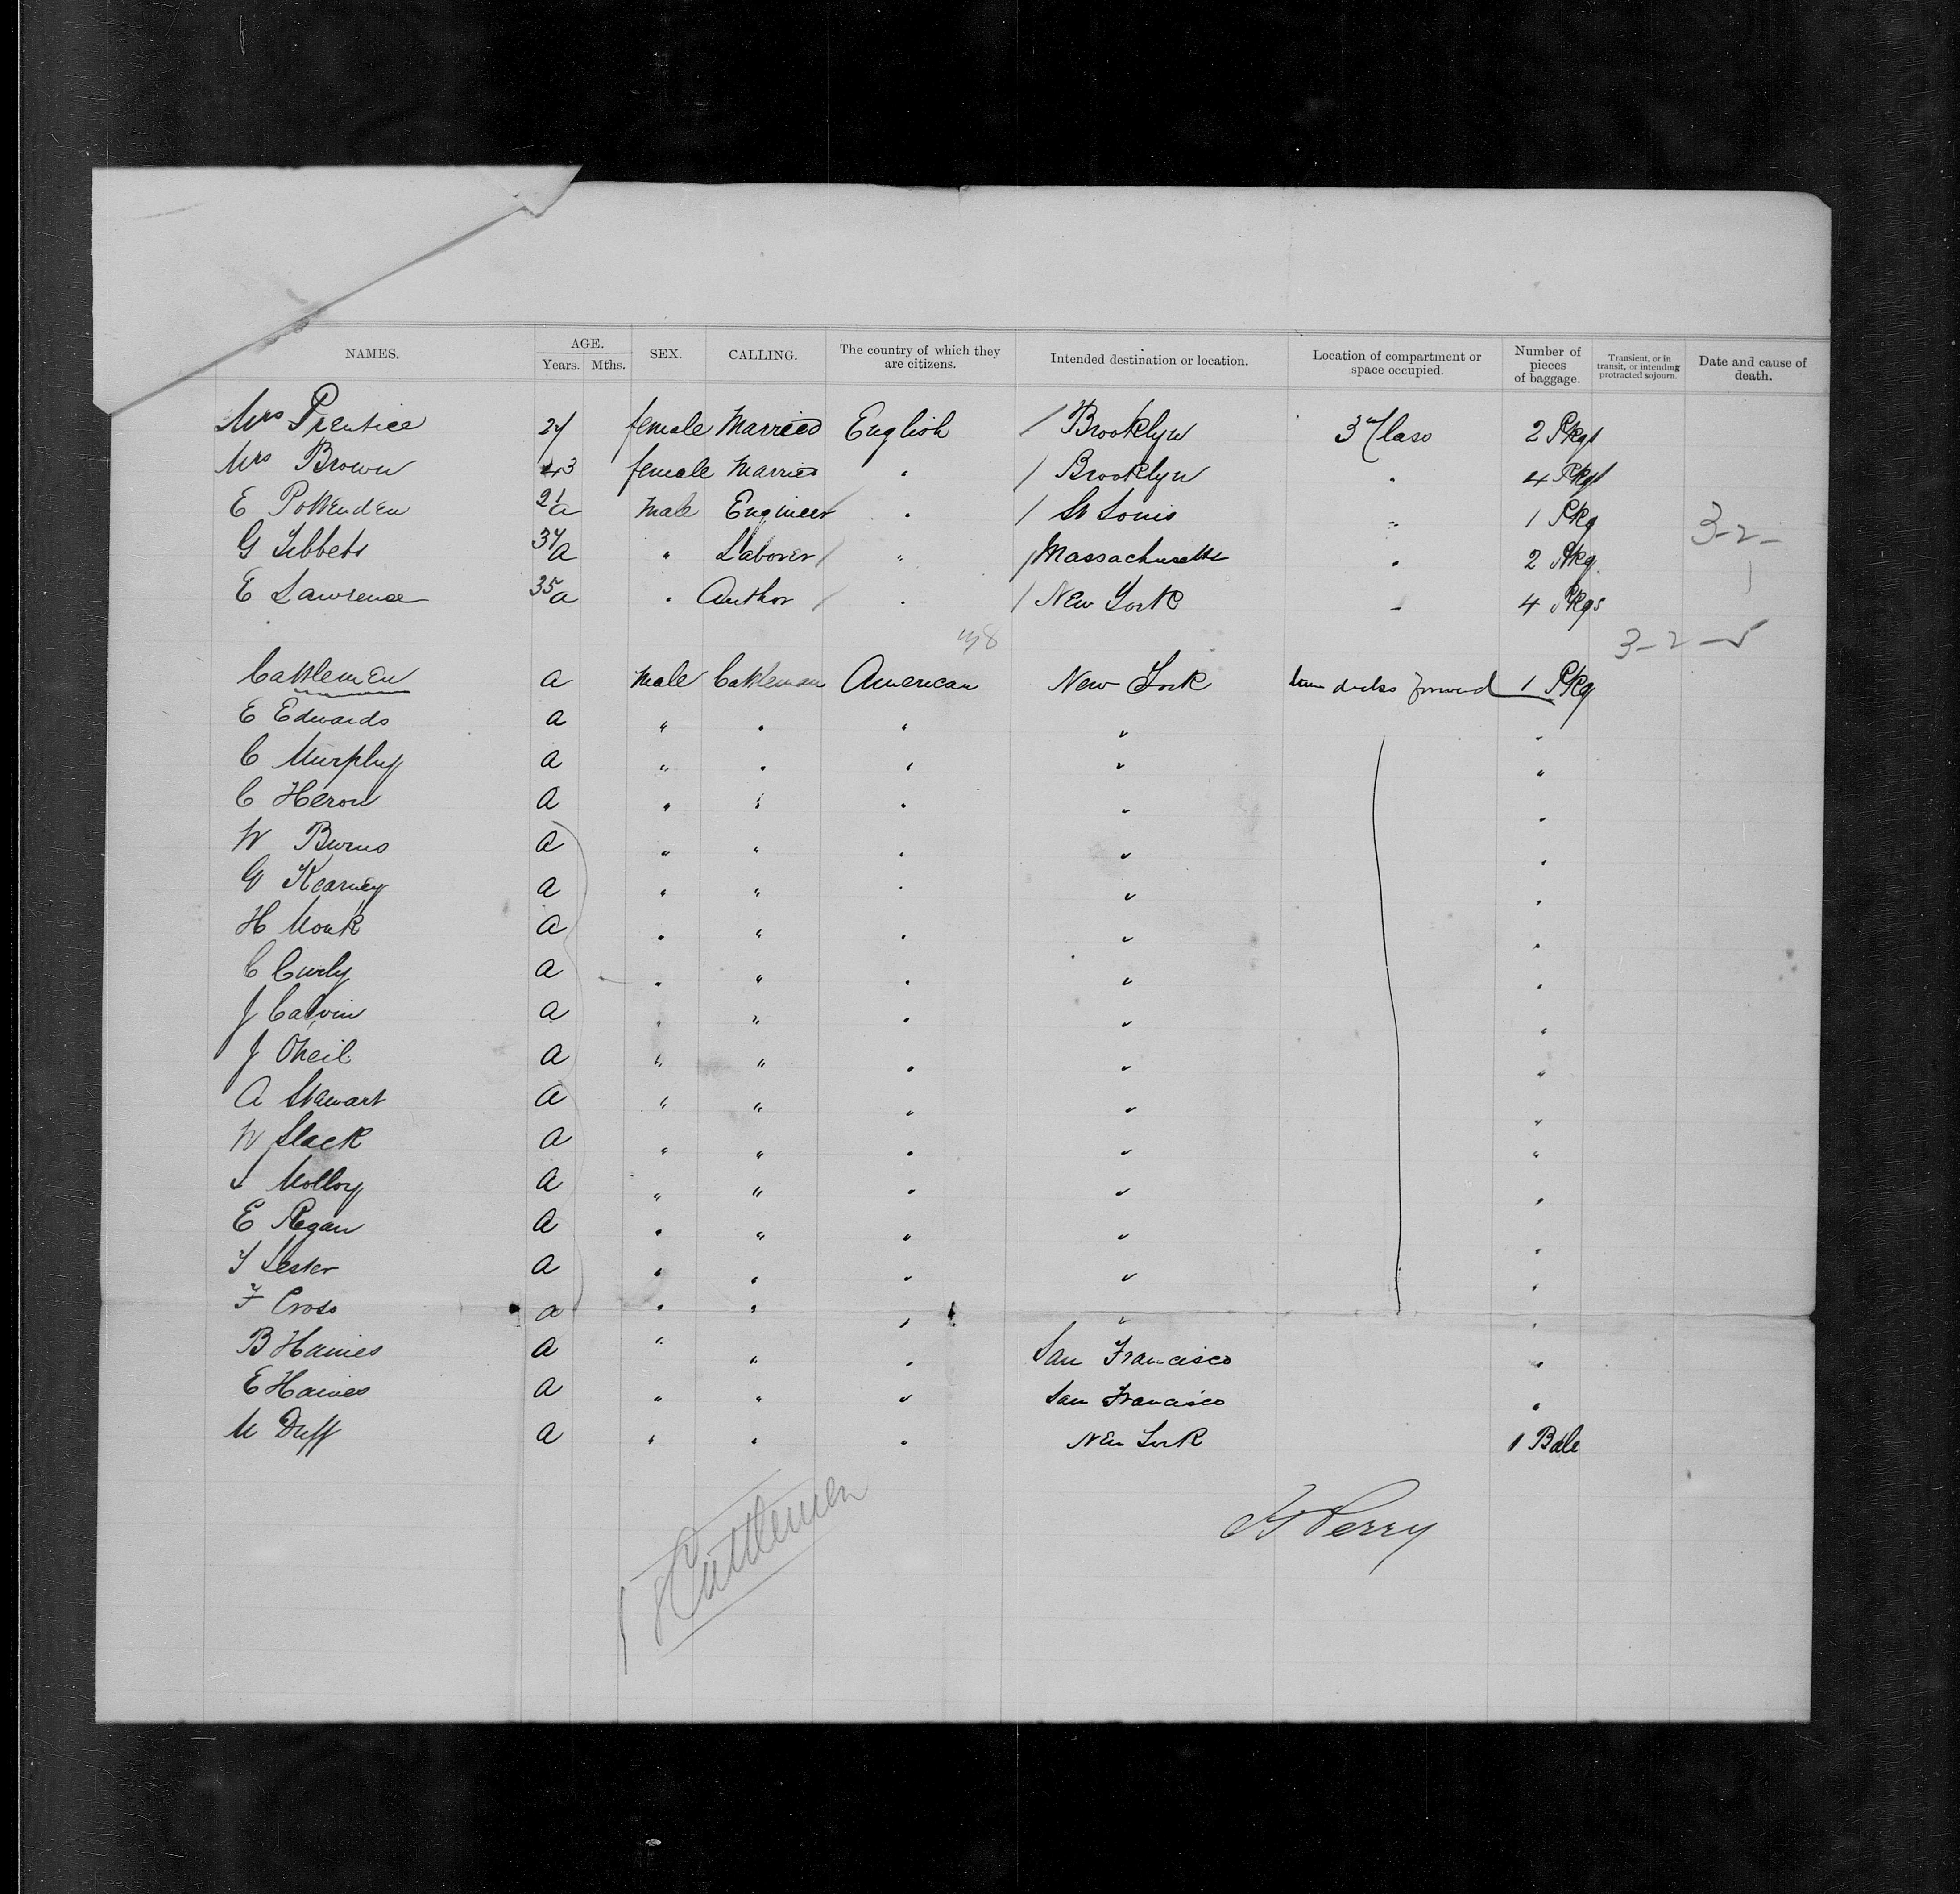 NAMES. AGE. Years. Mths. SEX. CALLING. The country of which they are citizens. Intended destination or location. Location of compartment or space occupied. Number of pieces of baggage. Transient, or in transit, or intending protracted sojourn. Date and cause of death.
Mrs Prentice female Married English / Brooklyn 3rd Class 2 Pkgs
Mrs Brown 43 female Married " / Brooklyn " 4 Pkgs
E 21 a Male Engineer / " / St Louis " 1 Pkg
G Tibbets 34 a " Laborer / " / Massachusetts " 2 Pkg
3-2-
E Lawrence 35 a " Author / " / New York " 4 Pkgs
3-2-
Cattlemen a Male Cattleman American New York decks forward 1 Pkg
E Edwards a " " " " "
C Murphy a " " " " "
C Heron a " " " " "
W Burns a " " " " "
G Kearney a " " " " "
H Monk a " " " " "
C Curly a " " " " "
J Calvin a " " " " "
J Oneil a " " " " "
A Stewart a " " " " "
W Slack a " " " " "
Molloy a " " " " "
E Regan a " " " " "
T Lester a " " " " "
F Cross a " " " " "
B Haines a " " " San Francisco "
E Haines a " " " San Francisco "
M Duff a " " " New York 1 Bale
Cattlemen
Perry